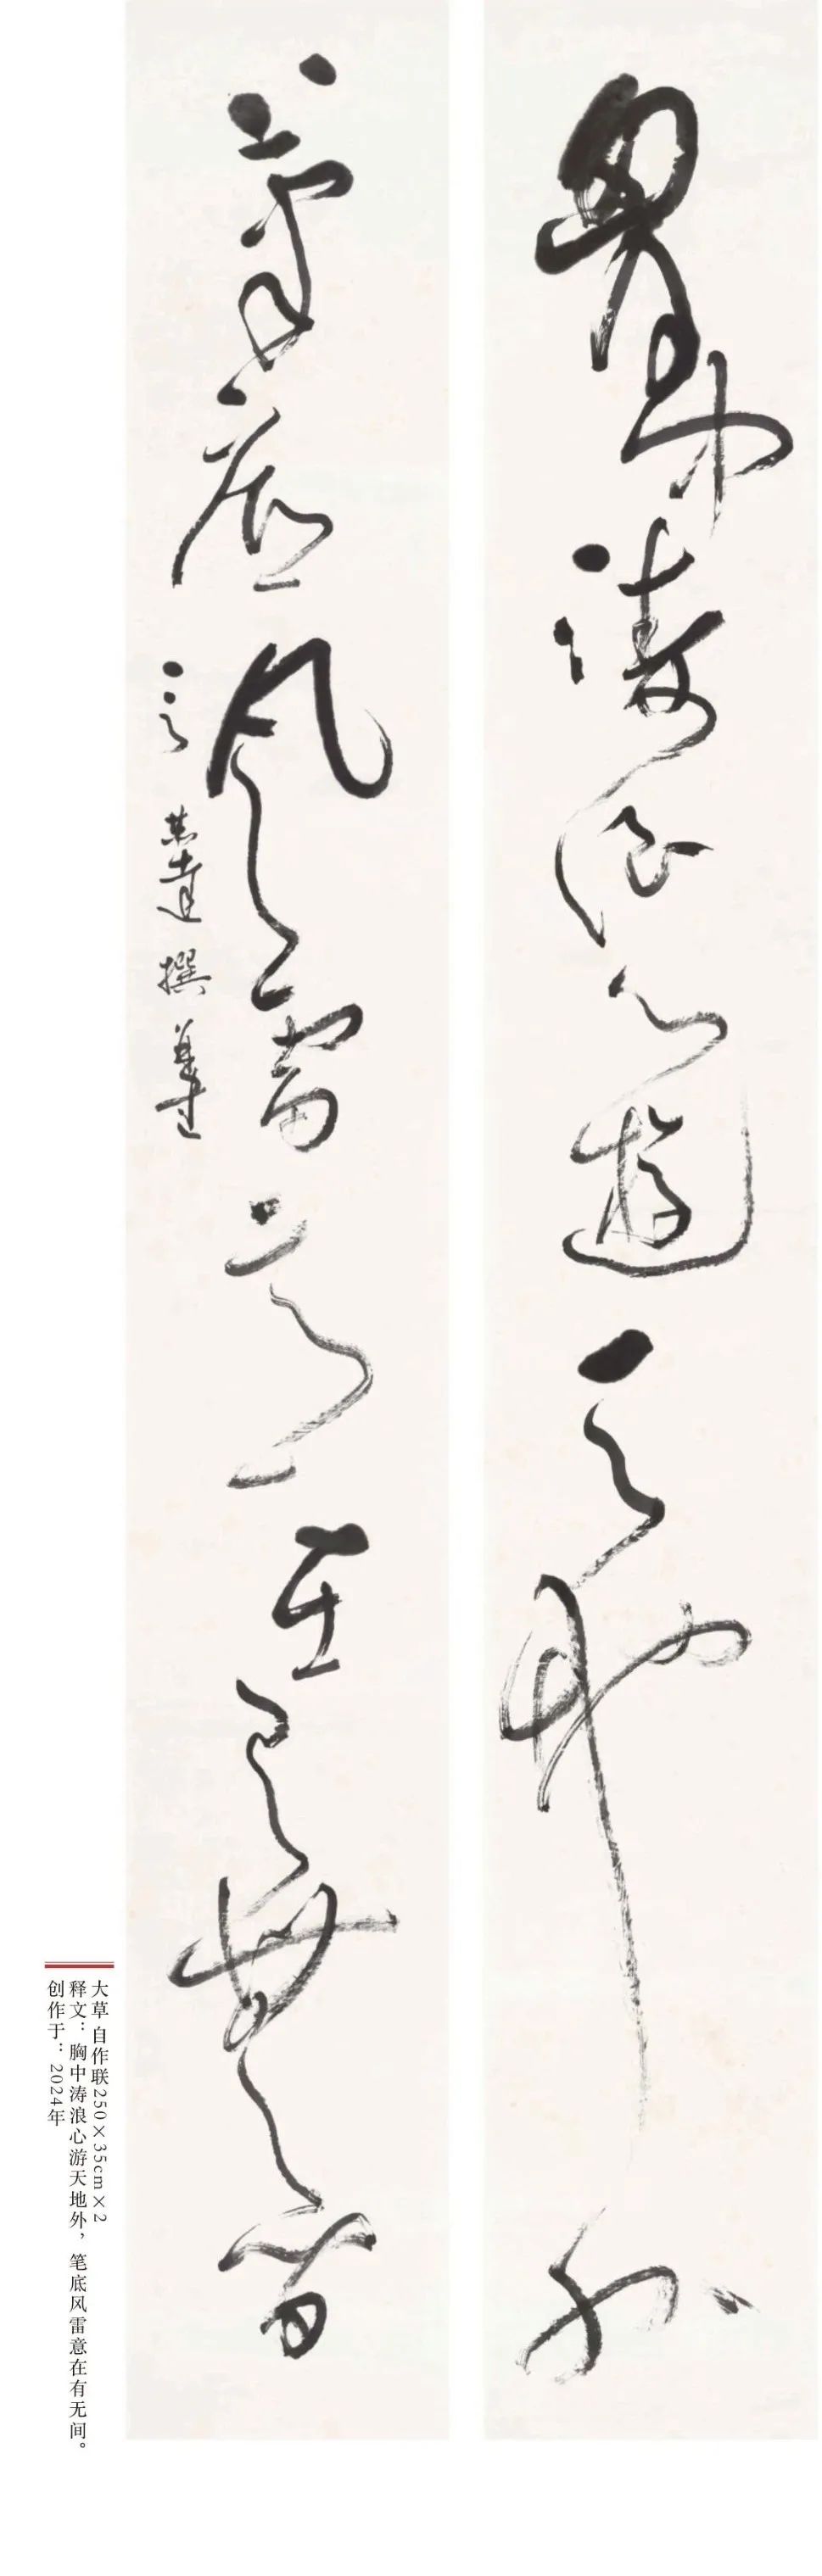 胸中濤浪心遊天地外
筆底風雷意在有無間
大草 自作联250×35cm×2
释文：胸中涛浪心游天地外，笔底风雷意在有无间。
创作于：2024年